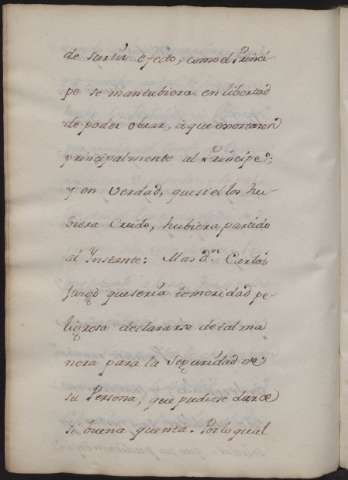 de surtir efecto, como el Princi-
pe se mantubiera en libertad
de poder obrar, à que exortaron
principalmente al Principe;
y en Verdad, que si el los hu-
biera Creido, hubiera partido
al Instante: Mas Dn. Carlos
Juzgò que seria temeridad pe-
ligrosa declararse de tal ma
nera para la Seguridad de
su Persona, que pudiese darse
se buena quenta. Por lo qual